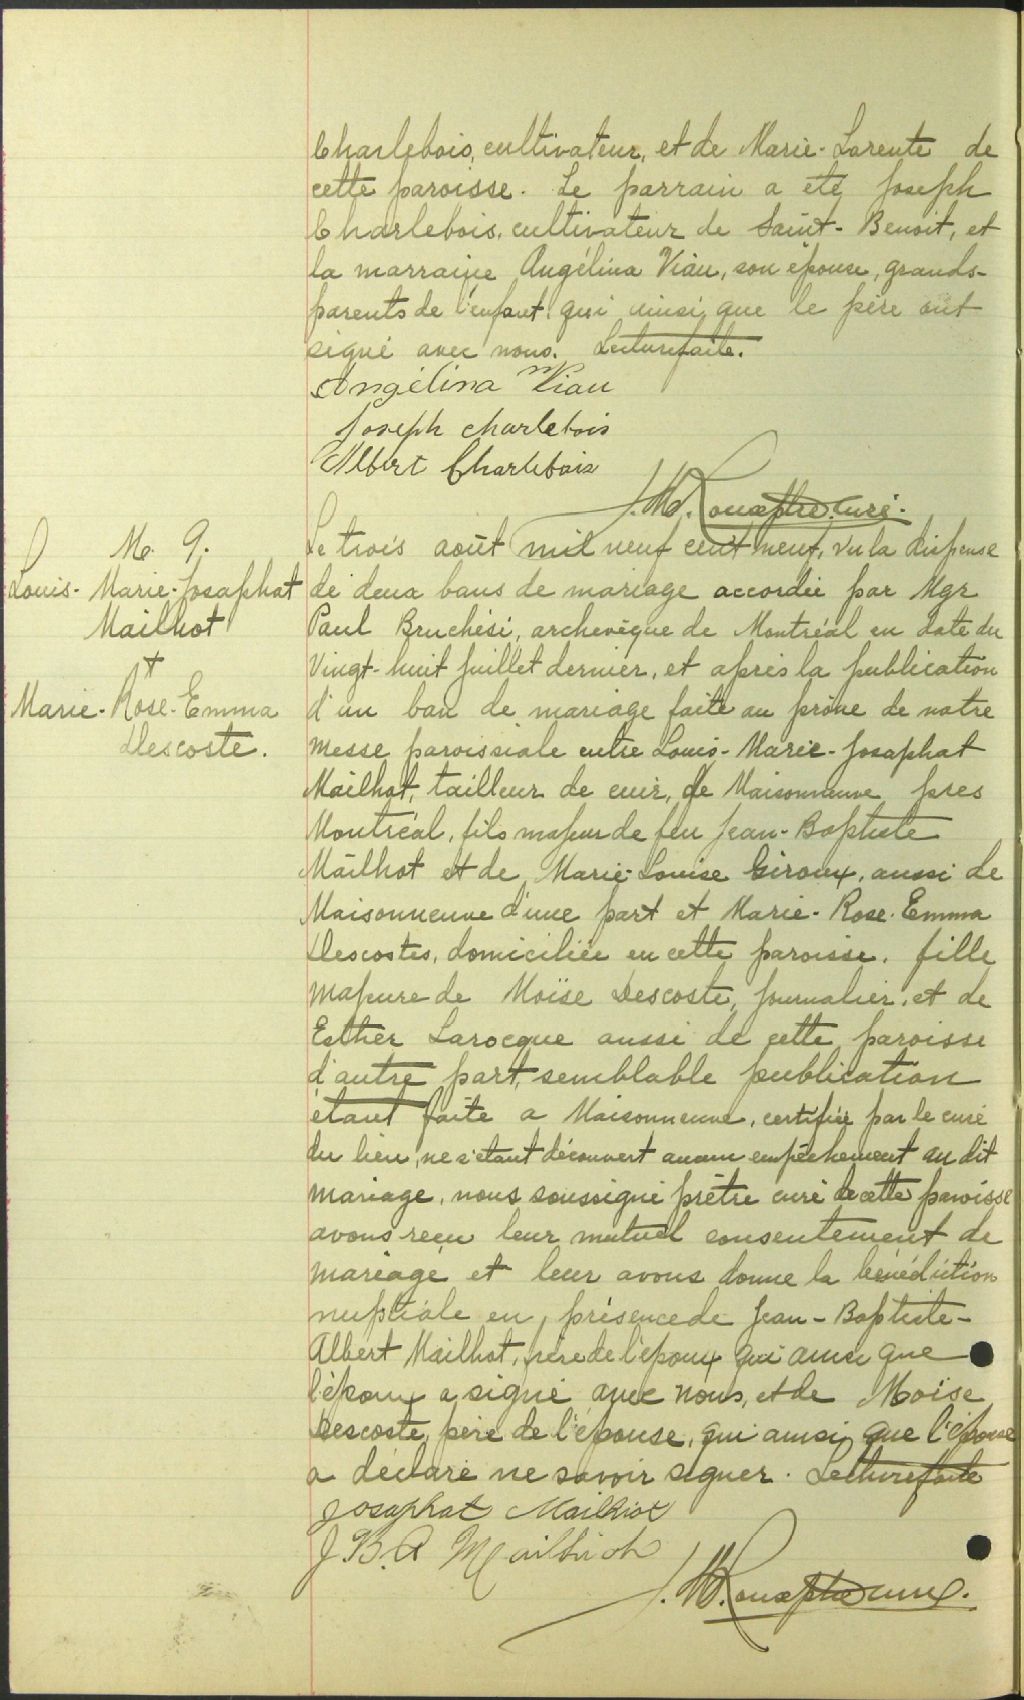 Charlebois, cultivateur, et de Marie-Larente de
cette paroisse. Le parrain a été Joseph
Charlebois, cultivateur de Saint-Benoit, et
la marraine Angélina Viau, son épouse, grands-
parents de l'enfant qui ainsi que le père ont
signé avec nous. Lecture faite.
Angélina Viau
Joseph Charlebois
Albert Charlebois
curé.
M. 9.
Louis-Marie-Josaphat
Mailhot
+
Marie-Rose-Emma
Descoste.
Le trois août mil neuf cent neuf, vu la dispense
de deux bans de mariage accordée par Mgr
Paul Bruchési, archevêque de Montréal en date du
vingt-huit juillet dernier, et après la publication
d'un ban de mariage faite au prône de notre
messe paroissiale entre Louis-Marie-Josaphat
Mailhot, tailleur de cuir, de Maisonneuve près
Montréal, fils majeur de feu Jean-Baptiste
Mailhot et de Marie-Louise Giroux, aussi de
Maisonneuve d'une part et Marie-Rose-Emma
Descostes, domiciliée en cette paroisse, fille
majeure de Moïse Descoste, journalier, et de
Esther Larocque aussi de cette paroisse
d'autre part, semblable publication
étant faite a Maisonneuve, certifiée par le curé
du lieu, ne s'étant découvert aucun empêchement au dit
mariage, nous soussigné prêtre curé de cette paroisse
avons reçu leur mutuel consentement de
mariage et leur avons donné la bénédiction
nuptiale en présence de Jean-Baptiste-
Albert Mailhot, frère de l'époux qui ainsi que
l'époux a signé avec nous, et de Moïse
Descoste, père de l'épouse, qui ainsi que l'épouse
a déclaré ne savoir signer. Lecture faite
Josaphat Mailhiot
J B. A Mailhiot
curé.